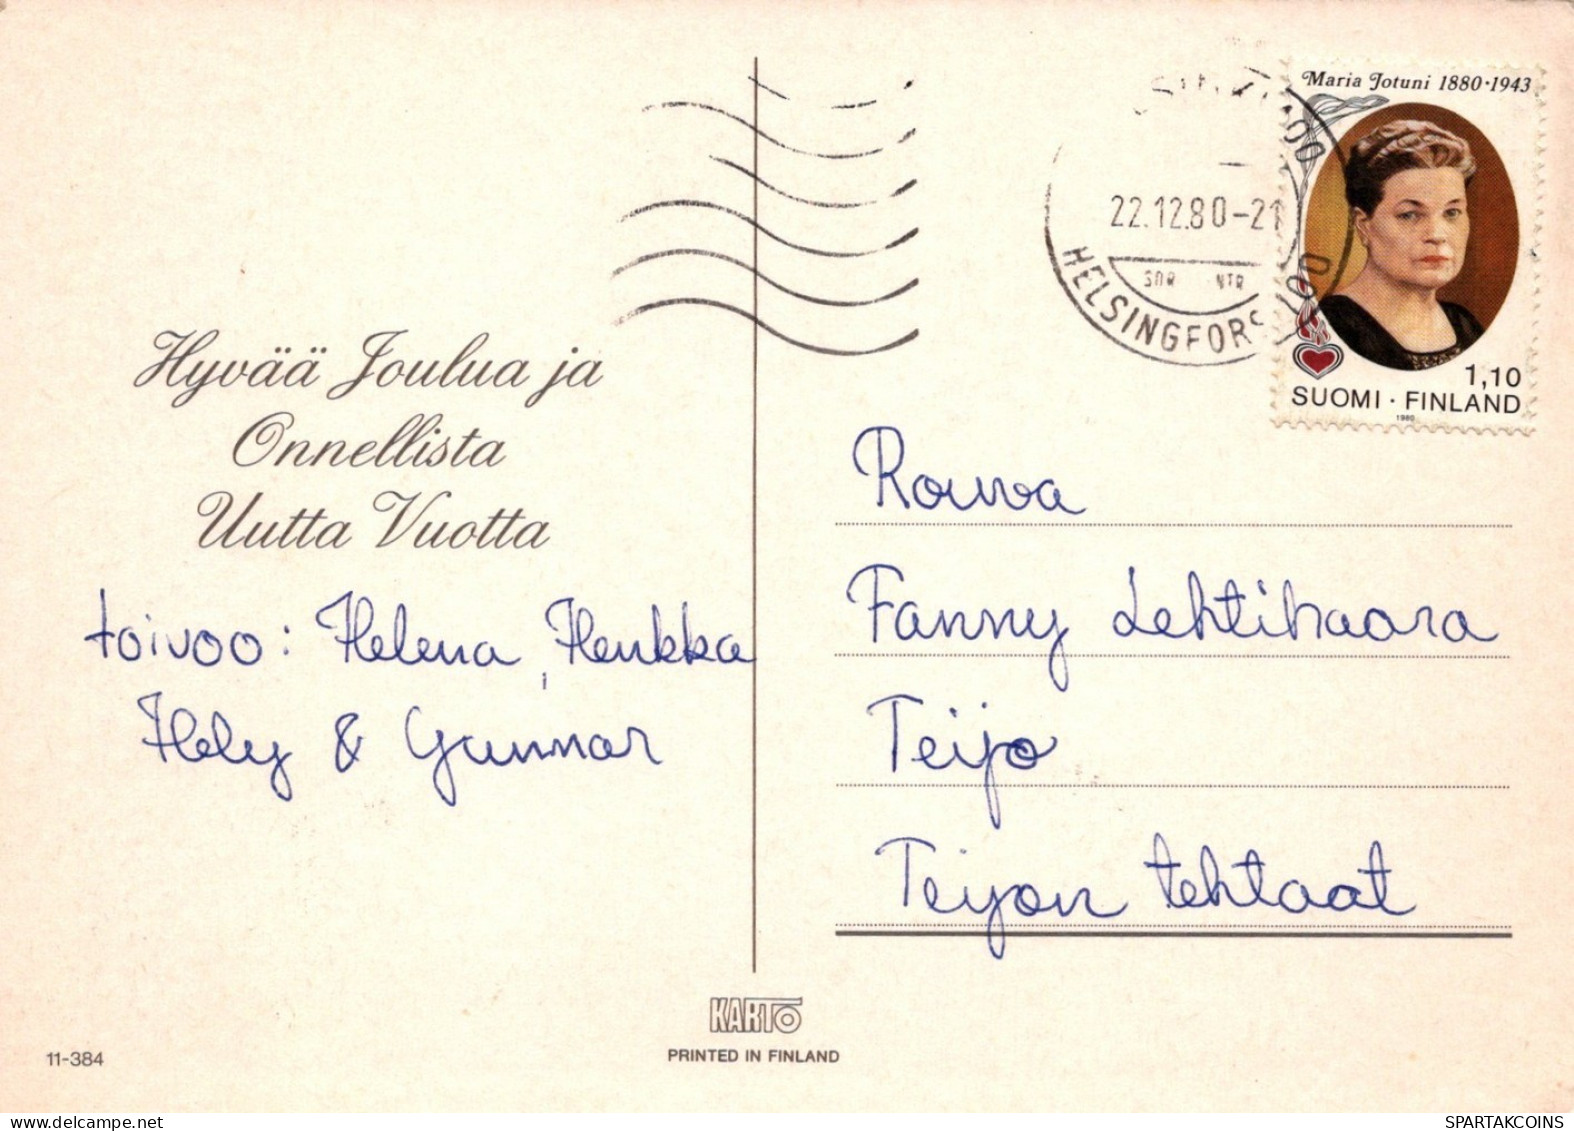 Maria Jotuni 1880·1943
22.12.80-21
HELSINGFORS
1,10
SUOMI · FINLAND
1980
Hyvää Joulua ja
Onnellista
Uutta Vuotta
toivoo: Helena, Henkka
Hely & Gunnar
Rouva
Fanny Lehtihaara
Teijo
Teijon tehtaat
KARTO
PRINTED IN FINLAND
11-384
SPARTAKCOINS